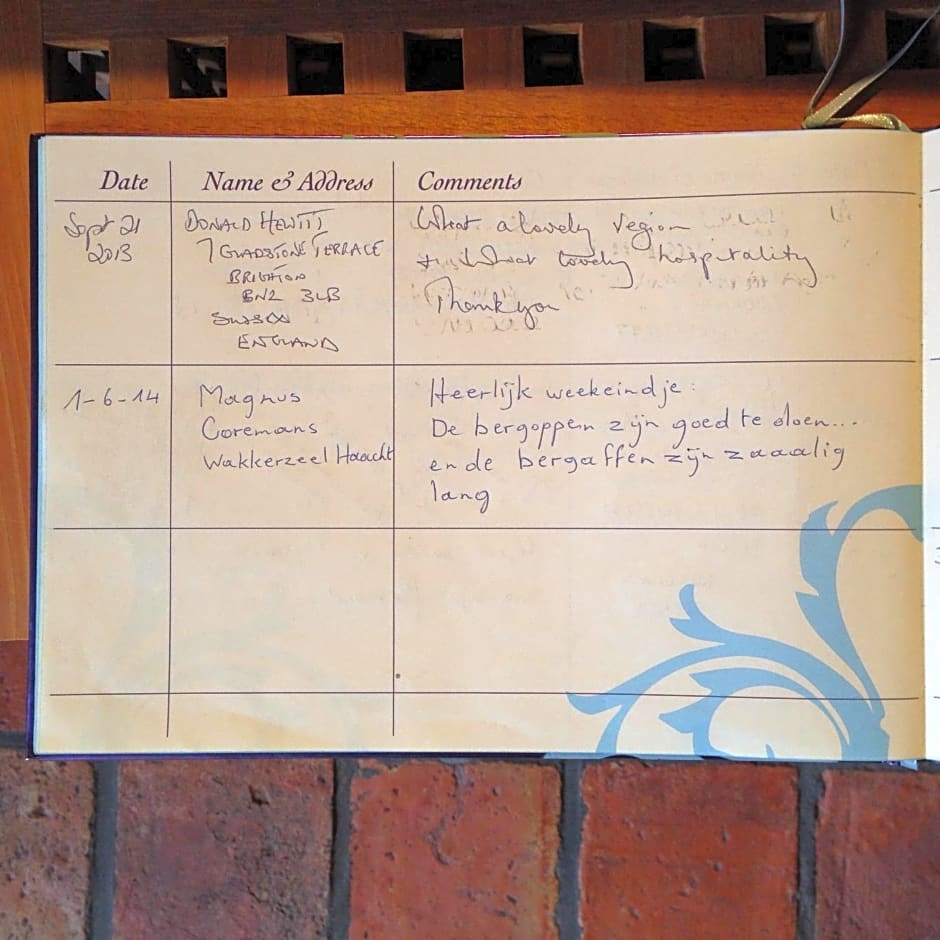 Date Name & Address Comments
Sept 21
2013
DONALD HEWITT
7 GLADSTONE TERRACE
BRIGHTON
BN2 3LB
SUSSEX
ENGLAND
What a lovely region
what lovely hospitality
Thankyou
1-6-14
Magnus
Coremans
Wakkerzeel Haacht
Heerlijk weekeindje:
De bergoppen zijn goed te doen...
en de bergaffen zijn zaaalig
lang